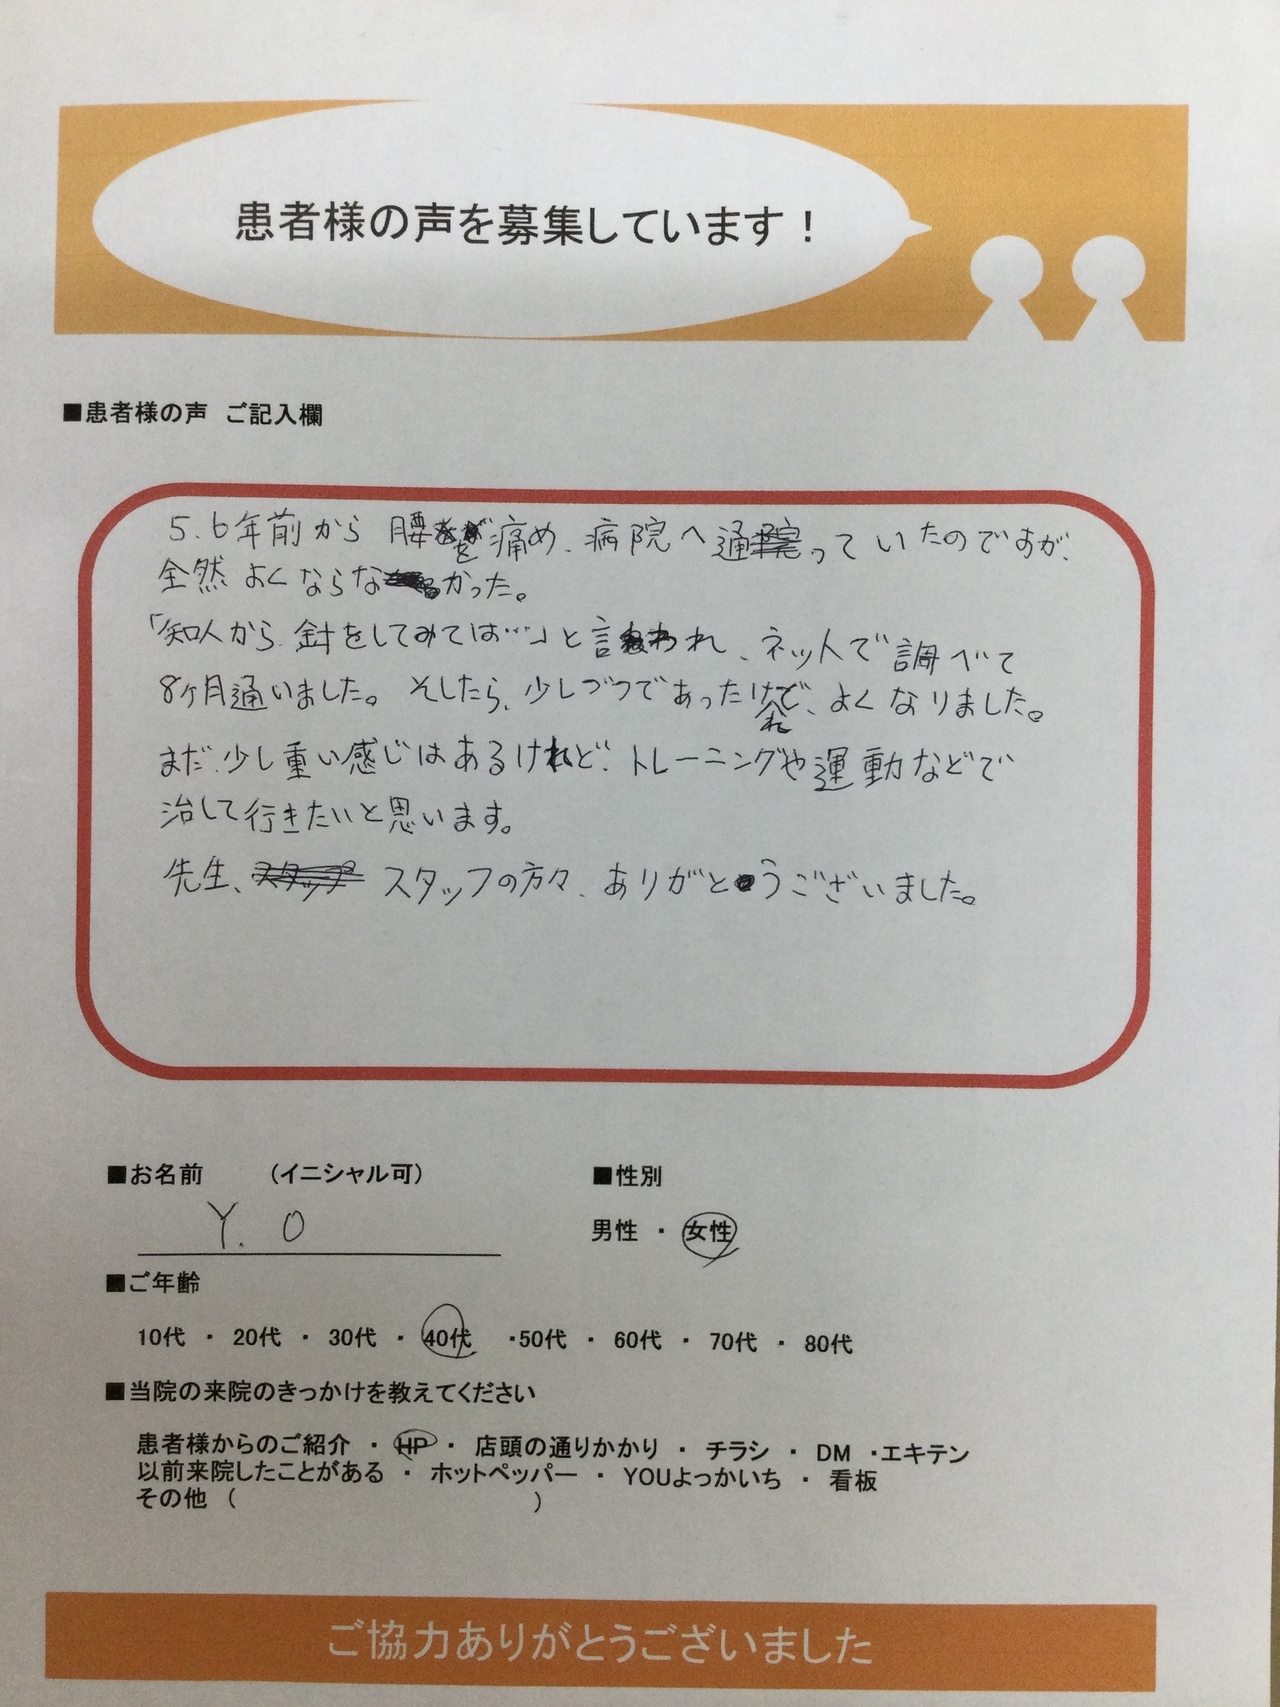 患者様の声を募集しています！
■患者様の声 ご記入欄
5.6年前から腰を痛め、病院へ通っていたのですが、
全然よくならなかった。
「知人から針をしてみては…」と言われ、ネットで調べて
8ヶ月通いました。そしたら、少しづつであったけれど、よくなりました。
まだ少し重い感じはあるけれど、トレーニングや運動などで
治して行きたいと思います。
先生、スタッフの方々、ありがとうございました。
■お名前 （イニシャル可） ■性別
Y. O 男性 ・ 女性
■ご年齢
10代 ・ 20代 ・ 30代 ・ 40代 ・50代 ・ 60代 ・ 70代 ・ 80代
■当院の来院のきっかけを教えてください
患者様からのご紹介 ・ HP ・ 店頭の通りかかり ・ チラシ ・ DM ・エキテン
以前来院したことがある ・ ホットペッパー ・ YOUよっかいち ・ 看板
その他（ ）
ご協力ありがとうございました